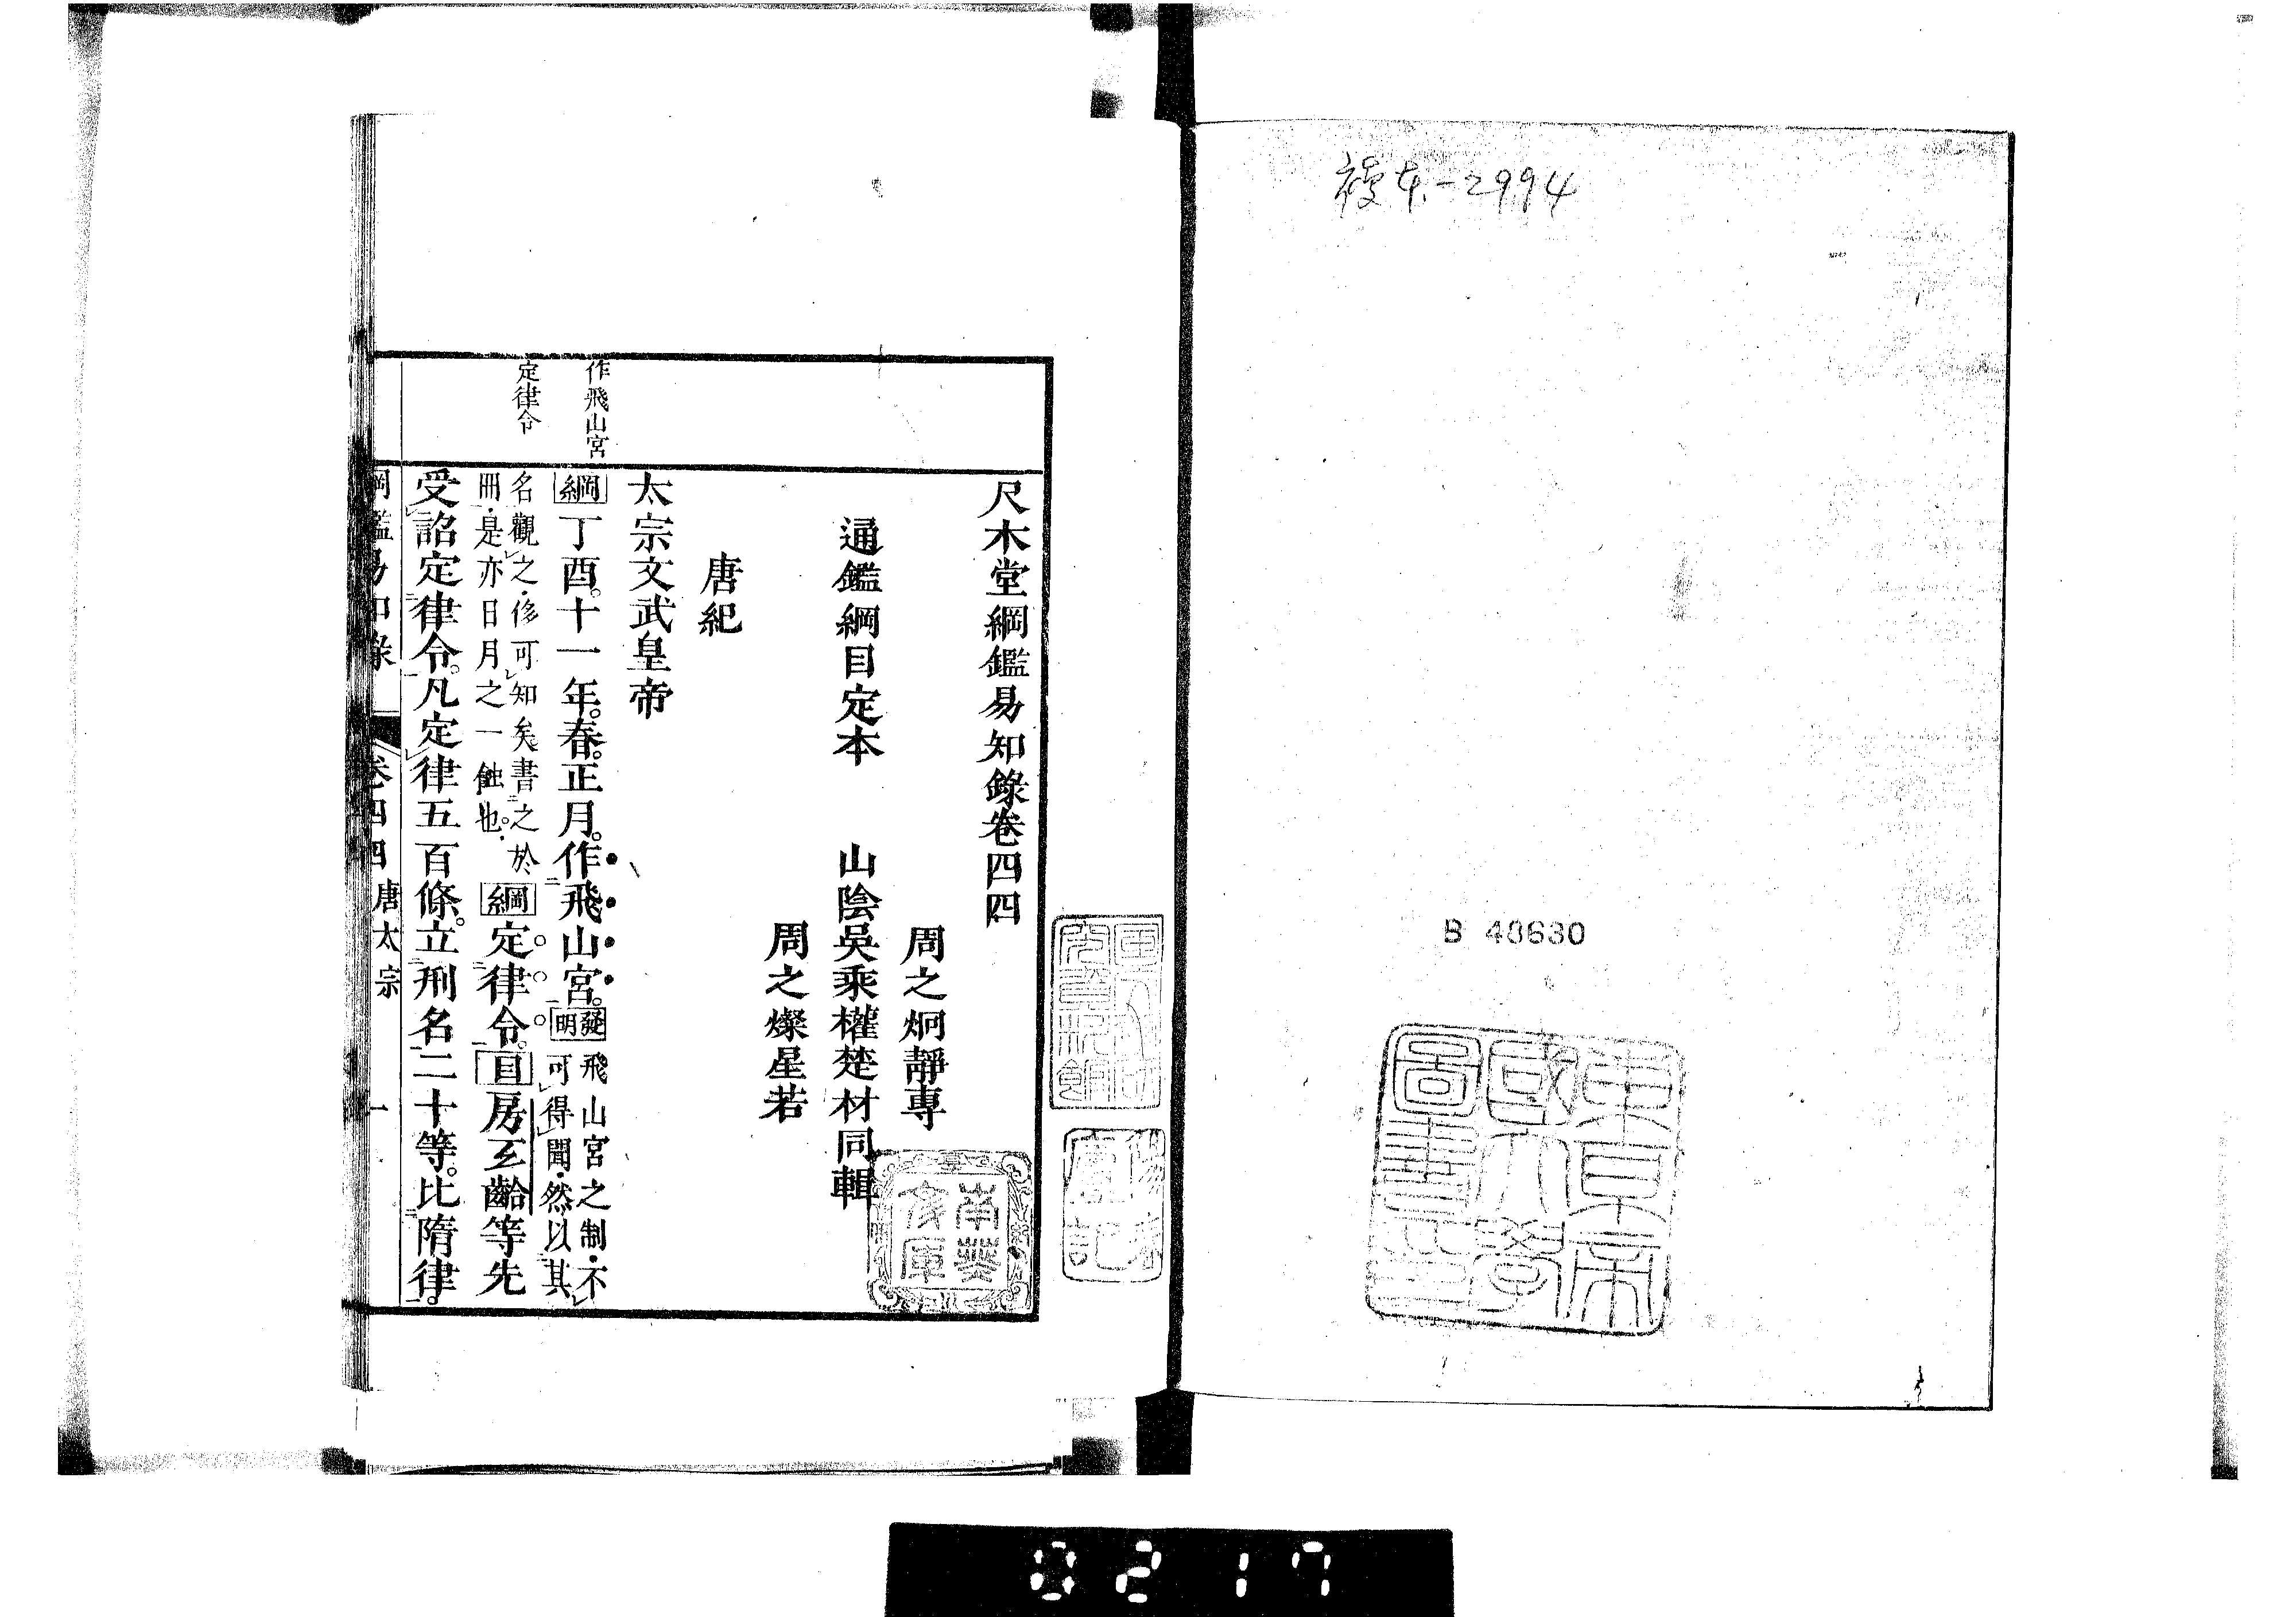 複本-2994
B 40630
東京帝
國大學
圖書印
尺木堂綱鑑易知錄卷四四
周之炯靜專
通鑑綱目定本 山陰吳乘權楚材同輯
周之燦星若
唐紀
太宗文武皇帝
作飛山宮
綱丁酉。十一年。春。正月。作飛山宮。發明飛山宮之制.不
可得聞.然以其
名觀之.侈可知矣。書之於
冊.是亦日月之一蝕也。
定律令
綱定律令。目房玄齡等先
受詔定律令。凡定律五百條。立刑名二十等。比隋律。
綱鑑易知錄 卷四四 唐太宗 一
南葵
文庫
陽春
廬記
0217